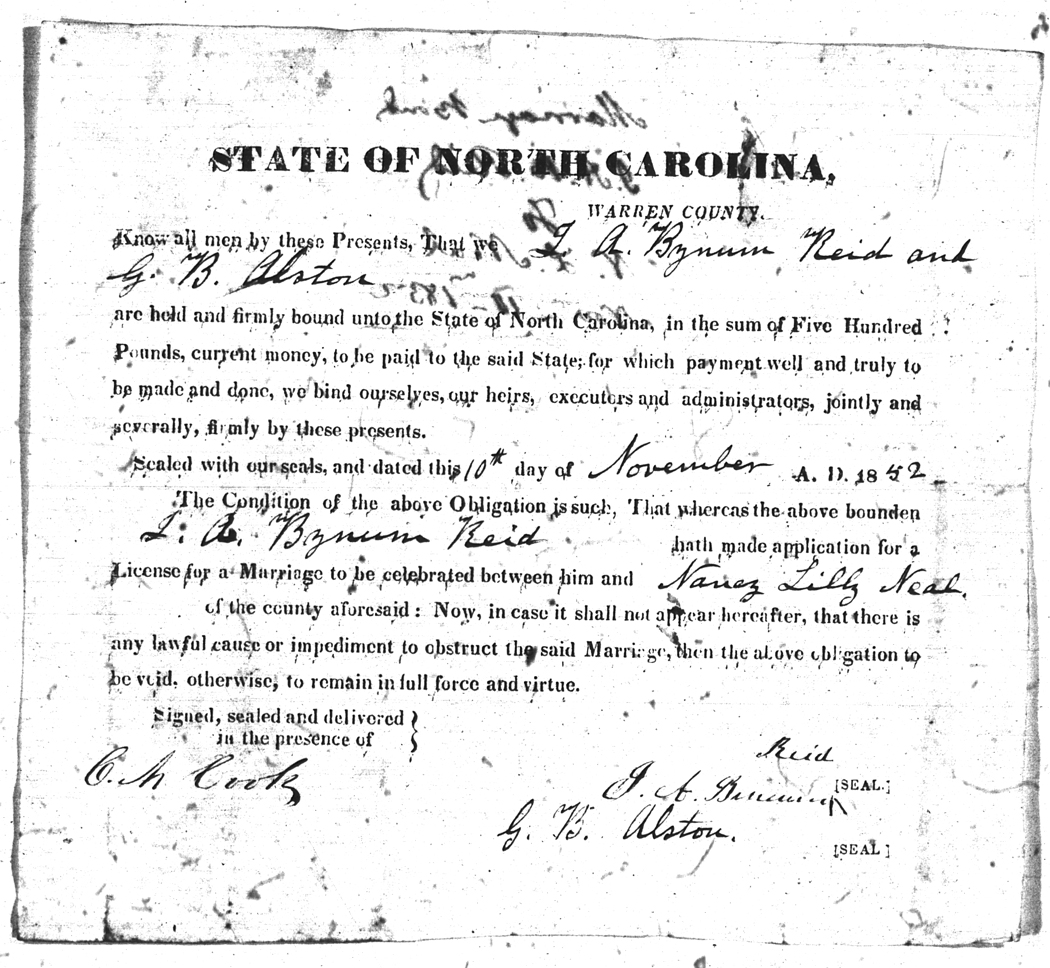 STATE OF NORTH CAROLINA,
WARREN COUNTY.
Know all men by these Presents, That we J. A. Bynum Reid and
G. B. Alston
are held and firmly bound unto the State of North Carolina, in the sum of Five Hundred
Pounds, current money, to be paid to the said State; for which payment well and truly to
be made and done, we bind ourselves, our heirs, executors and administrators, jointly and
severally, firmly by these presents.
Sealed with our seals, and dated this 10th day of November A. D. 1852
The Condition of the above Obligation is such, That whereas the above bounden
J. A. Bynum Reid hath made application for a
License for a Marriage to be celebrated between him and Nancy Lilly Neal.
of the county aforesaid: Now, in case it shall not appear hereafter, that there is
any lawful cause or impediment to obstruct the said Marriage, then the above obligation to
be void, otherwise, to remain in full force and virtue.
Signed, sealed and delivered
in the presence of
C. M Cook
Reid
J. A. Bynum [SEAL.]
G. B. Alston.
[SEAL]